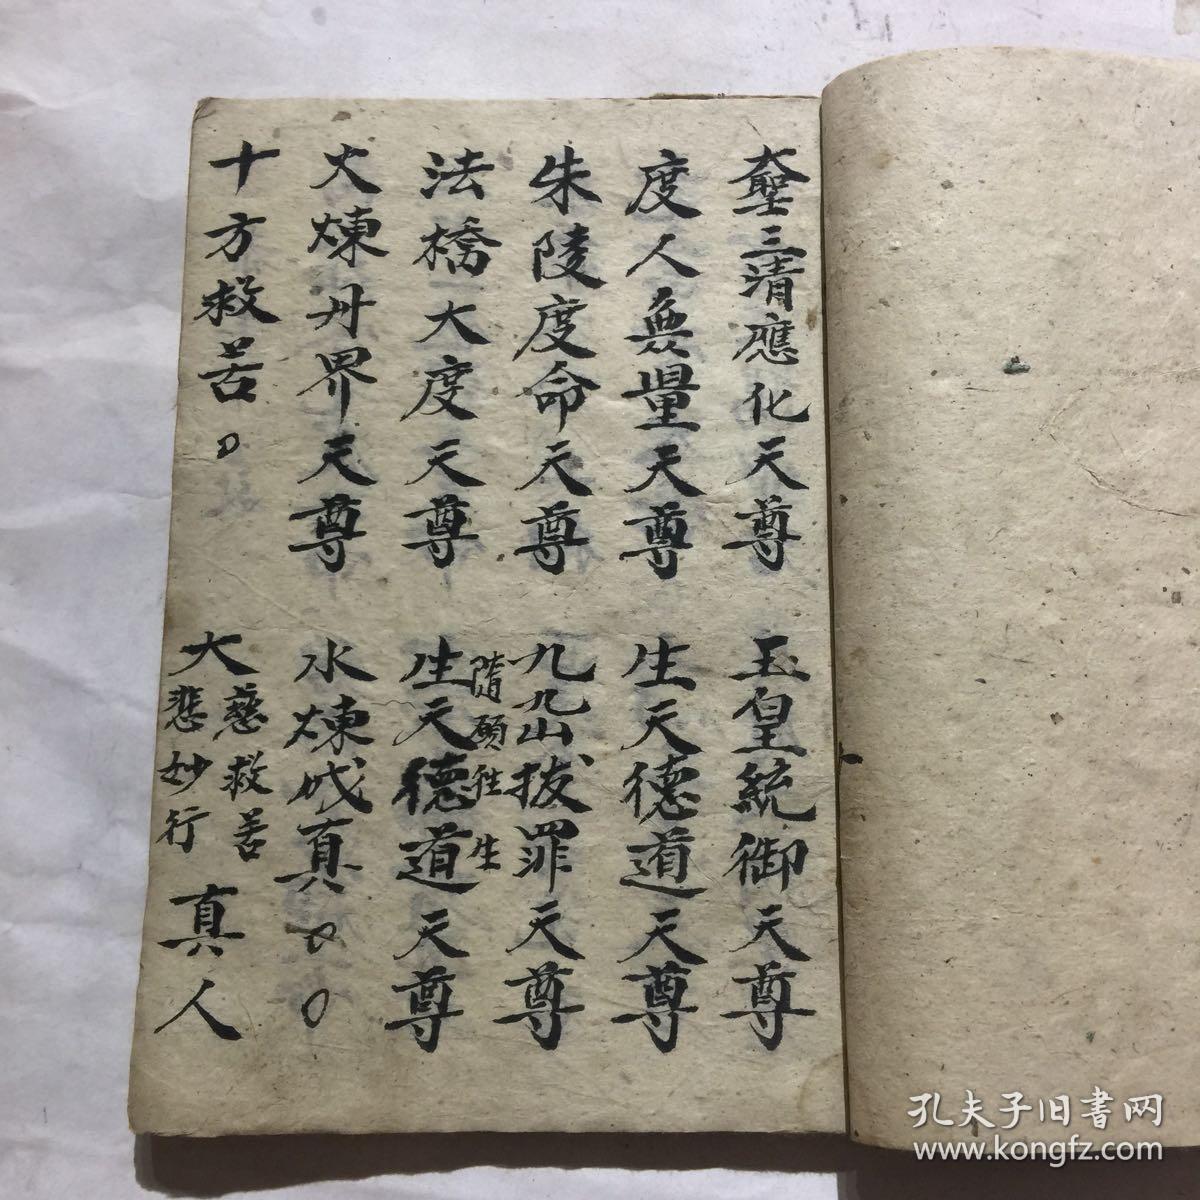 大聖三清應化天尊
玉皇統御天尊
度人無量天尊
生天德道天尊
朱陵度命天尊
九山拔罪天尊
隨願往生
法橋大度天尊
生天德道天尊
火煉丹界天尊
水煉成真
十方救苦
大慈救苦
悲妙行
真人
孔夫子旧书网
www.kongfz.com